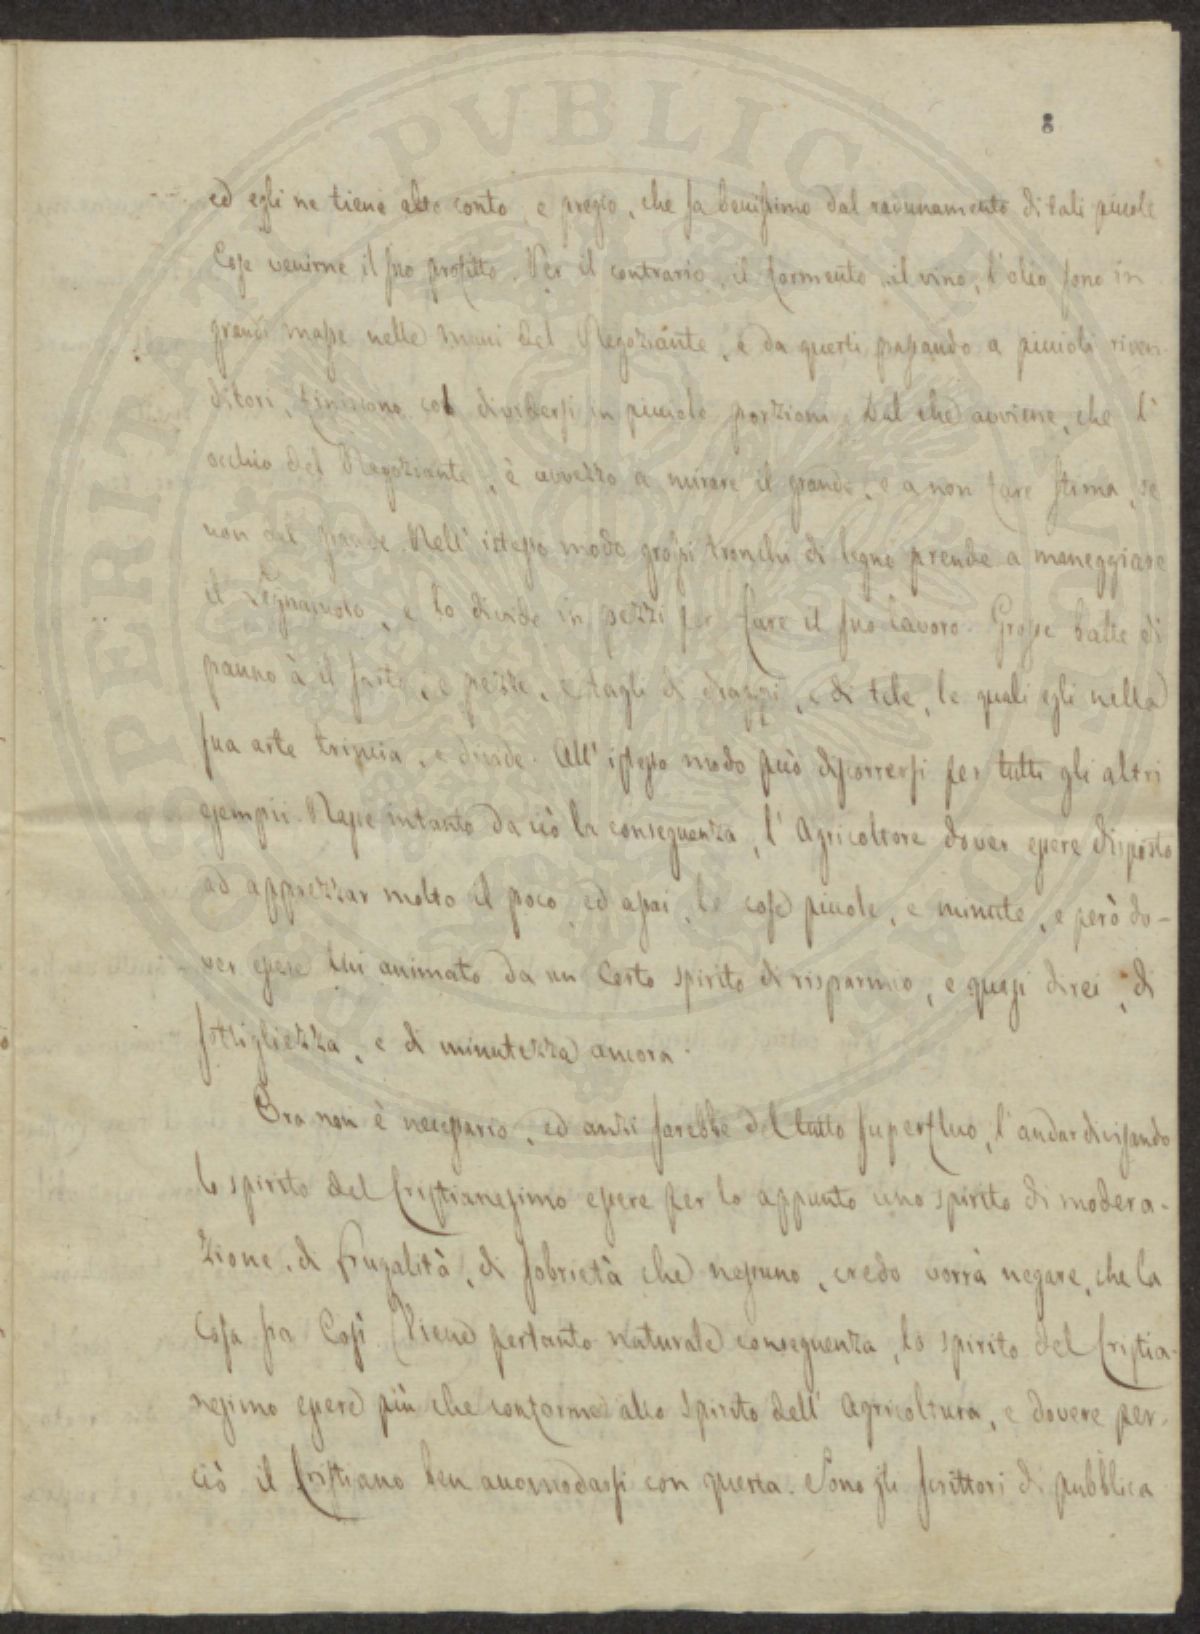 8
ed egli ne tiene alto conto, e pregio, che sa benissimo dal radunamento di tali picole
cose venirne il suo profitto. Per il contrario, il formento, il vino, l'olio sono in
grandi masse nelle mani del Negoziante, e da questi passando a piccioli riven-
ditori, finiscono col dividersi in picciole porzioni. Dal che avviene, che l'
occhio del Negoziante, è avvezzo a mirare il grande, e a non fare stima, se
non del grande. Nell' istesso modo grossi tronchi di legno prende a maneggiare
il Legnaiuolo, e lo divide in pezzi per fare il suo lavoro. Grosse balle di
panno à il sarto, e pezze, e tagli di drappi, e di tele, le quali egli nella
sua arte trincia, e divide. All' istesso modo può discorrersi per tutti gli altri
esempii. Nasce intanto da ciò la conseguenza, l' Agricoltore dover essere disposto
ad apprezzar molto il poco, ed assai, le cose picciole, e minute, e però do-
ver essere lui animato da un certo spirito di risparmio, e quasi direi, di
sottigliezza, e di minutezza ancora.
Ora non è necessario, ed anzi sarebbe del tutto superfluo, l'andar divisando
lo spirito del Cristianesimo essere per lo appunto uno spirito di modera-
zione, di frugalità, di sobrietà che nessuno, credo vorrà negare, che la
cosa sia così. Viene pertanto naturale conseguenza, lo spirito del Cristia-
nesimo essere più che conforme allo spirito dell' Agricoltura, e dovere per-
ciò il Cristiano ben accomodarsi con questa. Sono gli scrittori di pubblica
PERITATI PVBLICAE